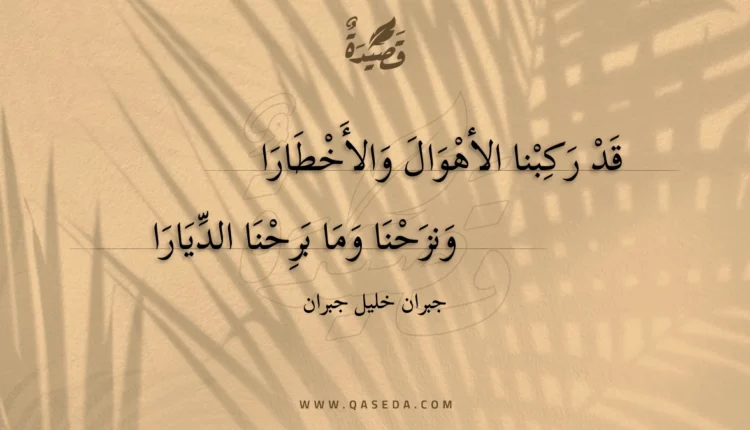 قَصِيْدَةٌ
قَدْ رَكِبْنا الأهْوَالَ وَالأَخْطَارَا
وَنزَحْنَا وَمَا بَرِحْنَا الدِّيَارَا
جبران خليل جبران
WWW.QASEDA.COM